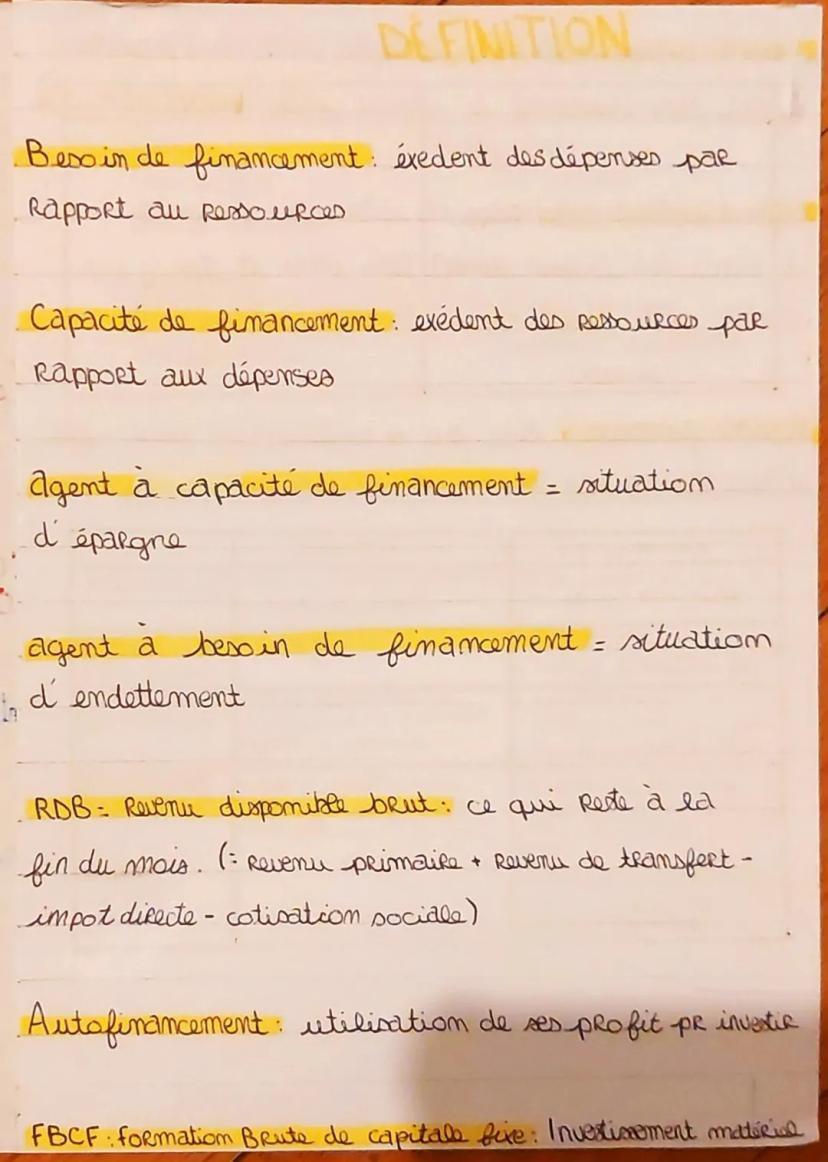 DÉFINITION
Besoin de financement : éxedent des dépenses par
Rapport au Ressources
Capacité de financement : exédent des Ressources par
Rapport aux dépenses
agent à capacité de financement = situation
d'épargne
agent à besoin de financement = situation
d'endettement
RDB = Revenu disponible brut : ce qui Reste à la
fin du mois. (= Revenu primaire + Revenu de transfert -
impot directe - cotisation sociale)
Autofinancement : utilisation de ses profit pr investir
FBCF : formation Brute de capitale fixe : Investissement matériel